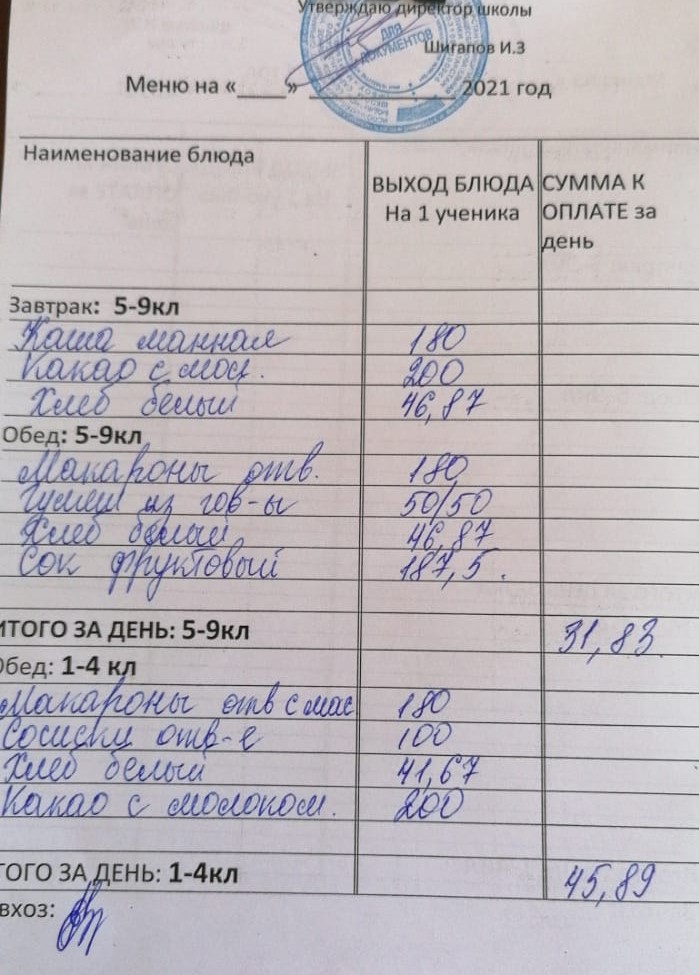 Утверждаю директор школы
ДЛЯ ДОКУМЕНТОВ
Шигапов И.З
Меню на «____» ______________ 2021 год
Наименование блюда
ВЫХОД БЛЮДА На 1 ученика
СУММА К ОПЛАТЕ за день
Завтрак: 5-9кл
Каша манная 180
Какао с мол. 200
Хлеб белый 46,87
Обед: 5-9кл
Макароны отв. 180
Гуляш из гов-ы 50/50
Хлеб белый 46,87
Сок фруктовый 187,5.
ИТОГО ЗА ДЕНЬ: 5-9кл 31,83
Обед: 1-4 кл
Макароны отв с мас 180
Сосиски отв-е 100
Хлеб белый 41,67
Какао с молоком. 200
ТОГО ЗА ДЕНЬ: 1-4кл 45,89
вхоз: